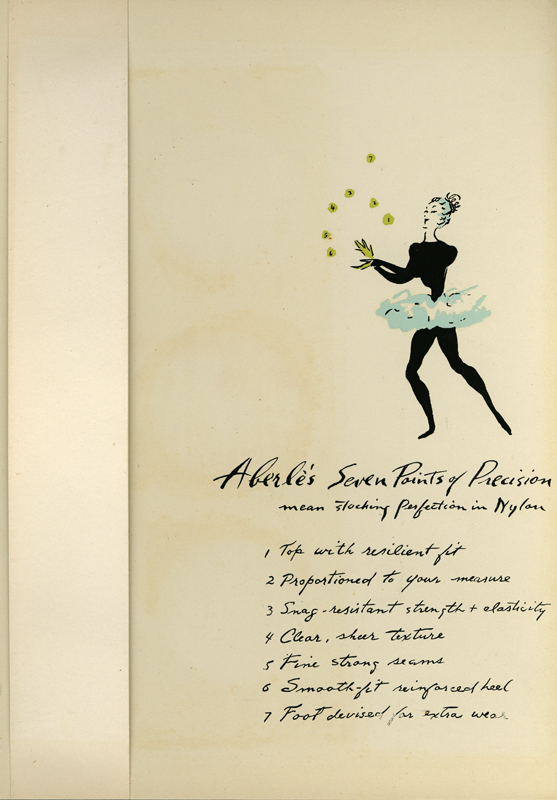 7
3
2
4
1
5
6
Aberlè's Seven Points of Precision
mean stocking perfection in Nylon
1 Top with resilient fit
2 Proportioned to your measure
3 Snag-resistant strength + elasticity
4 Clear, sheer texture
5 Fine strong seams
6 Smooth-fit reinforced heel
7 Foot devised for extra wear